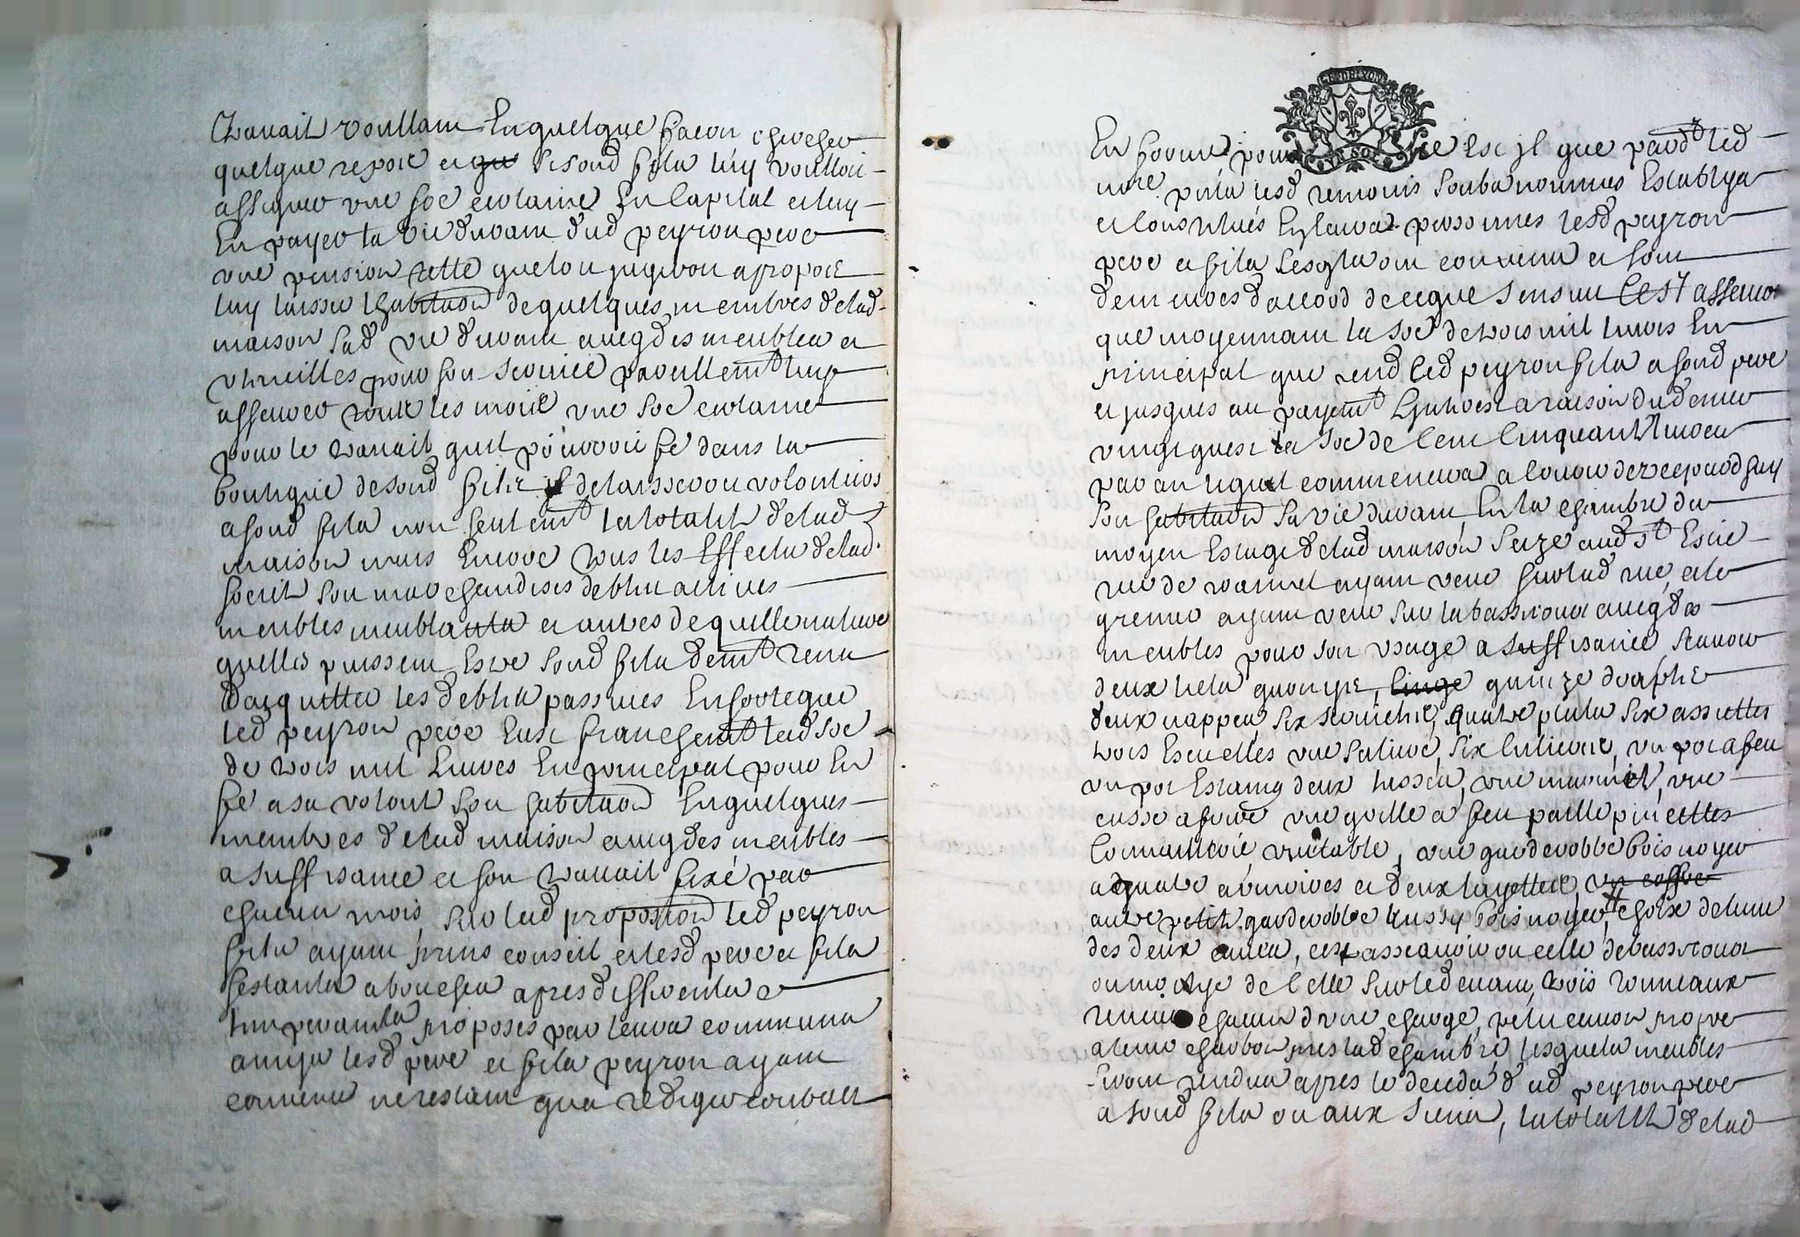 travail voullant En quelque facon chercher
quelque repoz et que sisond fils luy vouloit
assigner une soe certaine En Capital et luy
En payer la vie durant dud peyron pere
une pension telle quelon jugeroit apropoz
luy laisser lhabitaon de quelques membres de lad
maison sad vie durant aveq des meubles et
utancilles pour son service pareillemt luy
asseurer tous les mois une soe certaine
pour le travail quil pourroit fe dans la
boutique desond fils il delaisseroit volontiers
asond fils non seulemt la totalite de lad
maison mais Encore tous les Effects de lad
soeite son marchandises debtes actives
meubles meublants et autres de quelle nature
quelles puissent Estre sond fils demt tenu
dacquitter les debtes passives En sorte que
led peyron pere Eust franchemt lad soe
de trois mil livres En principal pour En
fe asa volonte son habitaon En quelques
membres de lad maison aveq des meubles
a suffisance et son travail fixé par
chacun mois, sur lad propostion led peyron
fils ayant prins conseil et lesd pere et fils
sestants abouches apres differentes
temperants proposes par leurs communs
amys lesd pere et fils peyron ayant
convenu ne restant qua rediger constrat
En forme pour Est jl que pardt led
nore pnts lesd temoins soubs nommes Establys
et Constitués En leurs personnes lesd peyron
pere et fils lesqls ont convenu et sont
demeurés d'accord de ce que sensuit Cest assavoir
que moyennant la soe de trois mil livres En
principal que rend led peyron fils a sond pere
et jusques au payemt Linterest a raison du denier
vingt quest la soe de Cent Cinquante livres
par an lequel commencera a courir dez ce jourdhuy
son habitaon sa vie durant En la chambre du
moyen Estage de lad maison size aud st Estie
rue de ayant veue sur lad rue, et le
grenier ayant veue sur la bassecour aveq des
meubles pour son usage a suffisance scavoir
deux licts garnys, linge quinze draps
deux nappes, six serviettes, quatre plats six assiettes
trois Escuelles une saliere, six cuilieres, un pot a feu
un pot Estaing deux, une marmite, une
casse a frire une grille a feu pelle pincettes
Comacle une table, une garderobbe bois noyer
a quatre armoires et deux layettes, un coffre
autre petit garderobbe aussy bois noyer, choix de lune
des deux caves, cest asscavoir ou celle de bassecour
ou moitye de celle sur le devant, trois tonneaux
tenant chacun dune charge, petit propre
a tenir charbon pres lad chambre, lesquels meubles
seront rendus apres le decedz dud peyron pere
a sond fils ou aux siens, la totalite de lad